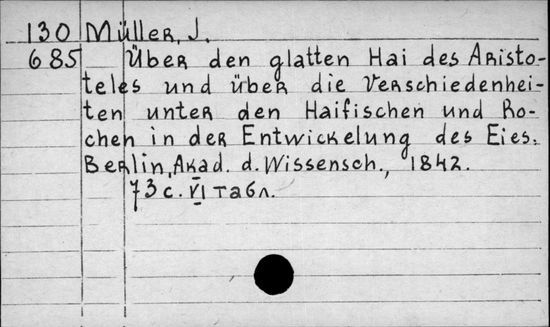 130 Müller, J.
685 Über den glatten Hai des Aristo-
teles und über die Verschiedenhei-
ten unter den Haifischen und Ro-
chen in der Entwickelung des Eies.
Berlin, Akad. d. Wissensch., 1842.
73 с. VI табл.